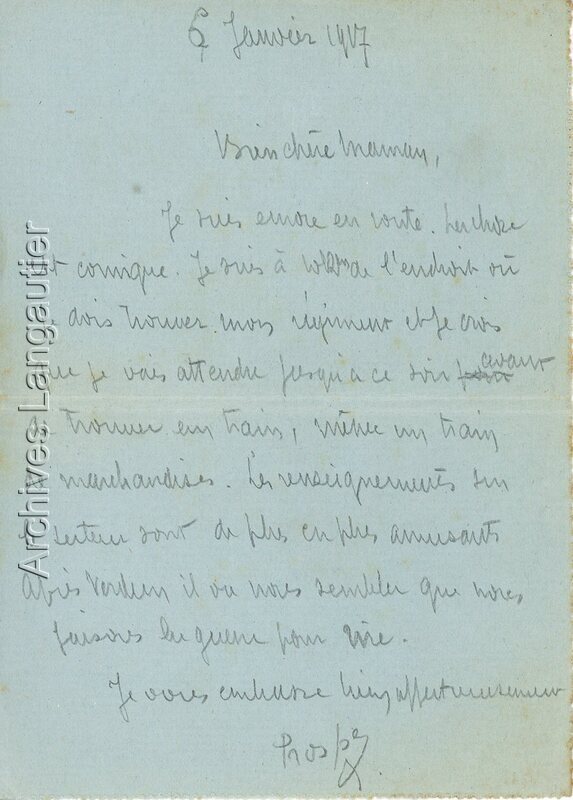 6 Janvier 1917
Bien chère Maman,
Je suis encore en route. La chose
est comique. Je suis à 10 Km de l'endroit où
je dois trouver mon régiment et je crois
que je vais attendre jusqu'à ce soir avant
de trouver un train, même un train
de marchandises. Les renseignements sur
le secteur sont de plus en plus amusants
Après Verdun il va nous sembler que nous
faisons la guerre pour rire.
Je vous embrasse bien affectueusement
Prosper
Archives Langautier